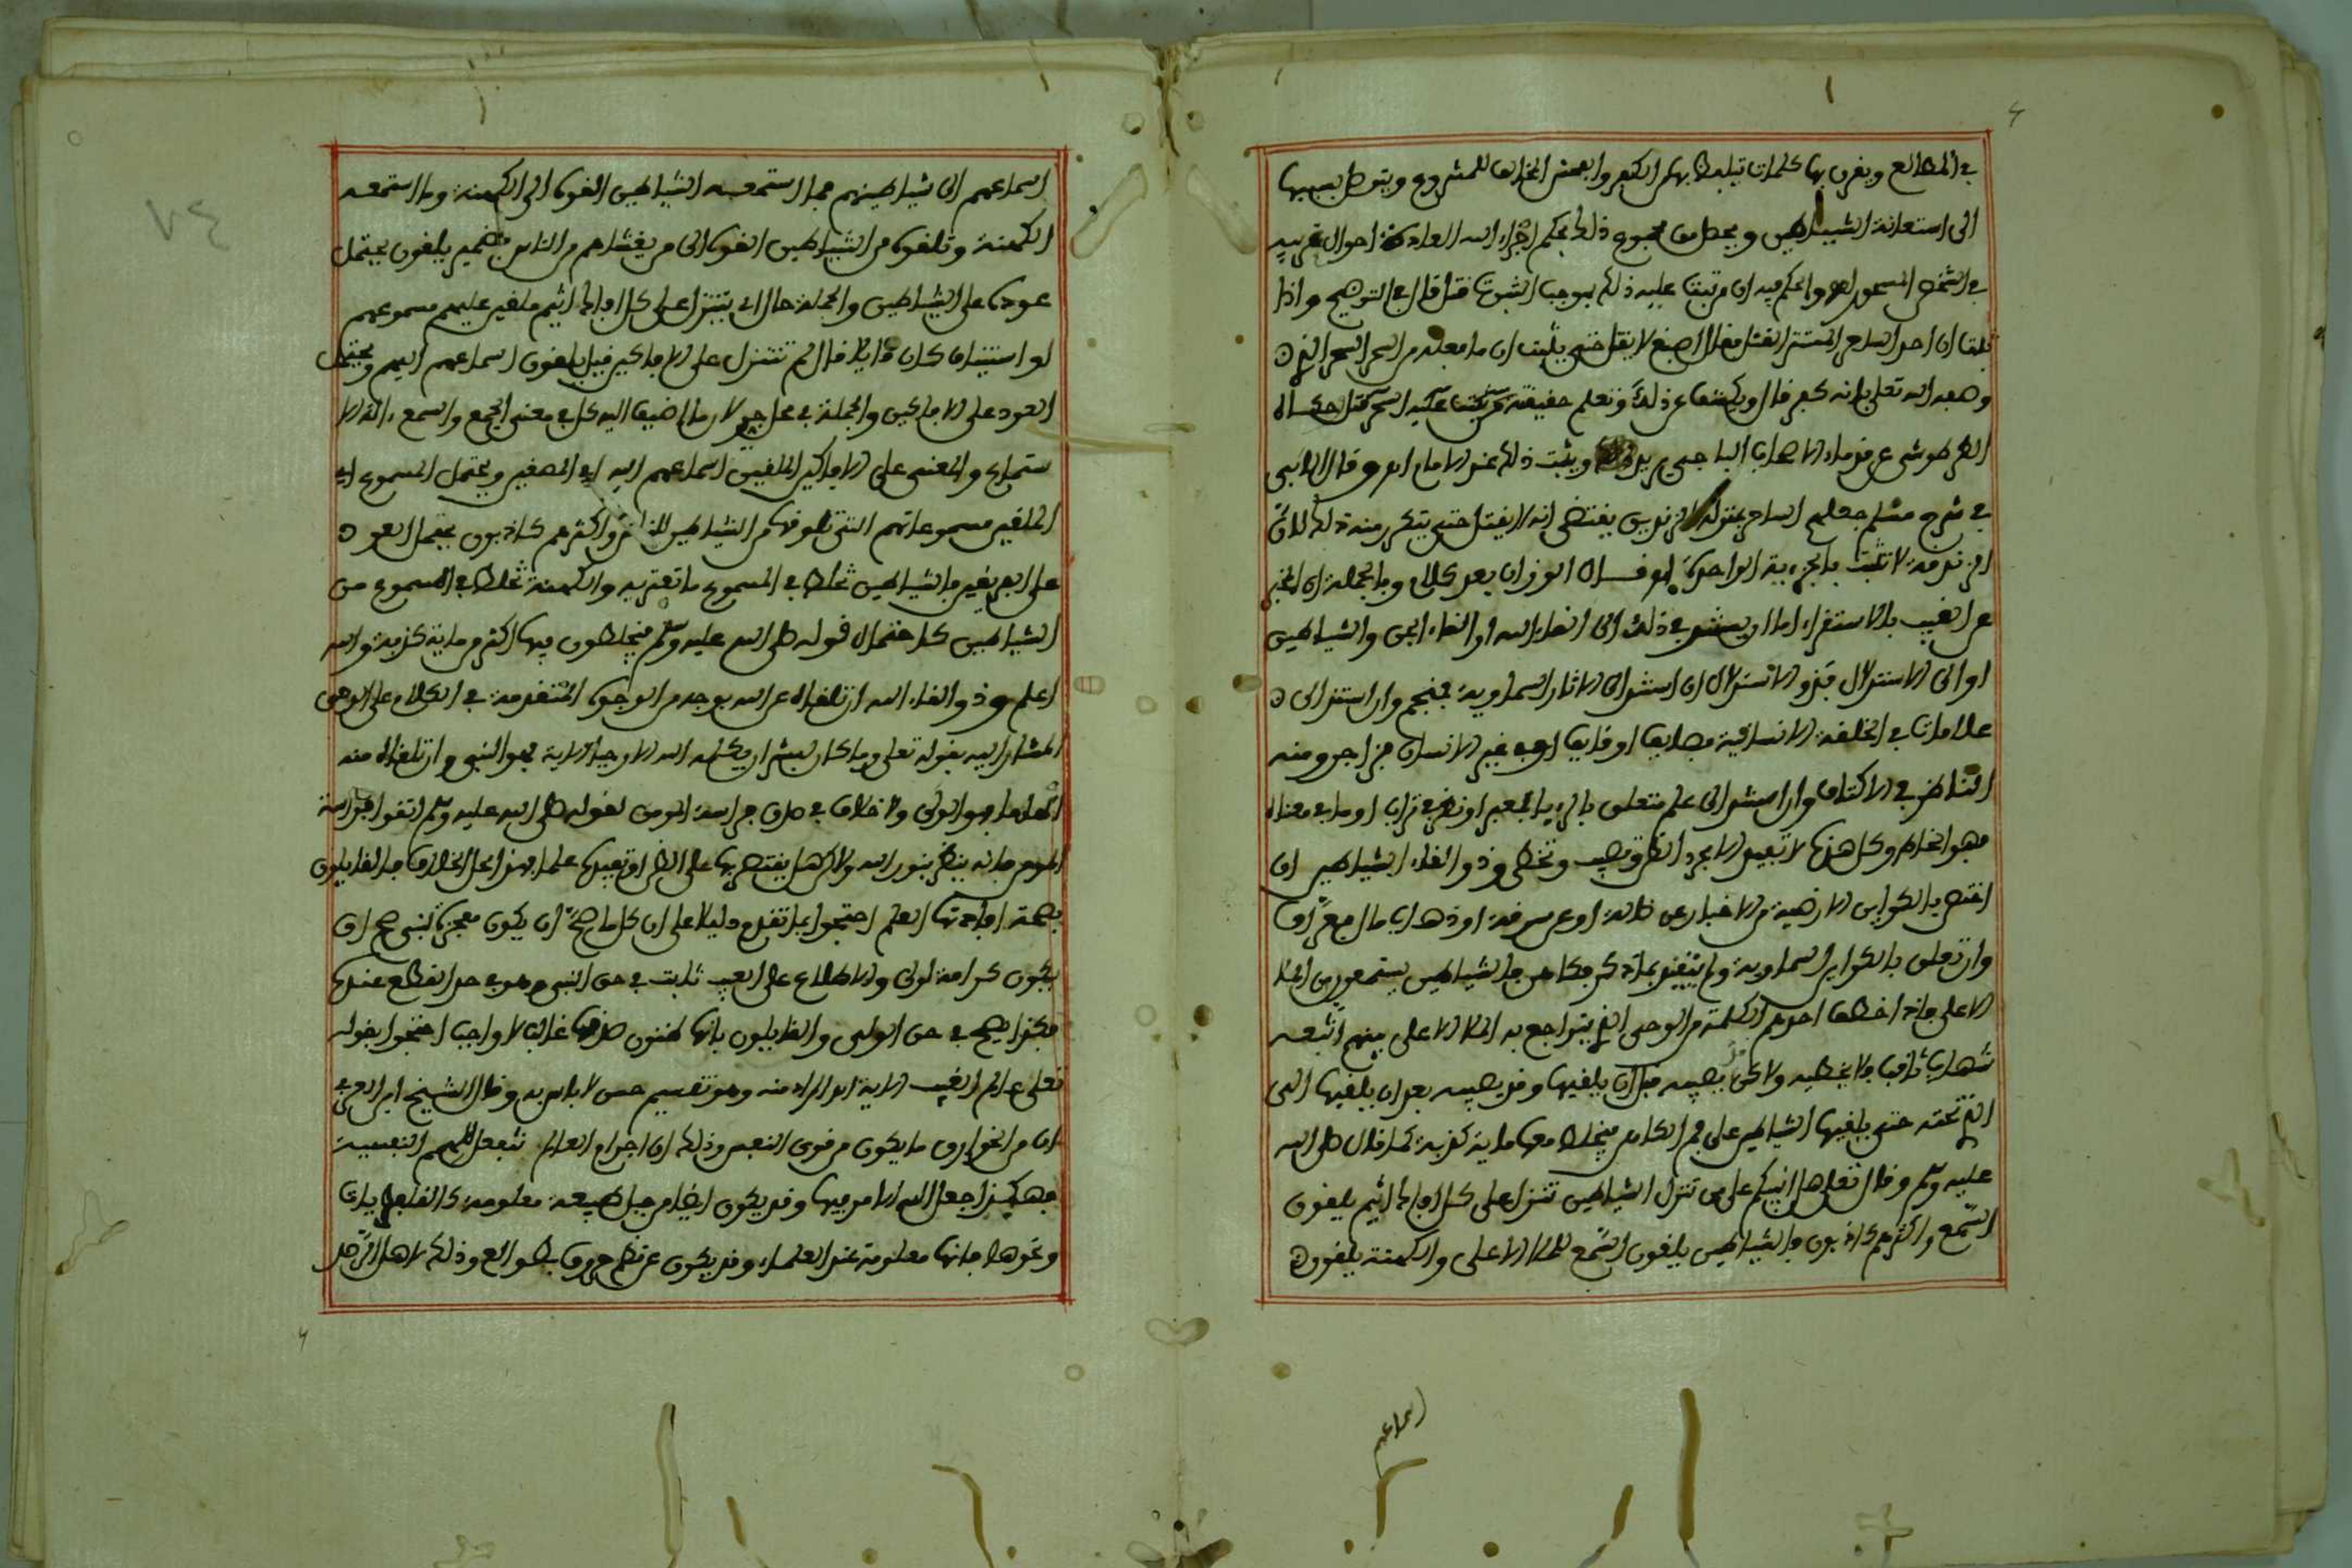 في المطالع ويقرن بها كلمات يتلفظ بها من الكفر والفحش المخالف للمشروع ويتوصل بسببها
الى استعانة الشياطين ويحصل من مجموع ذلك بحكم اجراء الله العادة احوال غريبة
في الشخص المسحور والحكم فيه ان ترتب عليه ذلك بموجب الثبوت قتل قال في التوضيح واذا
قلنا ان احد الساحر المستتر القتل فقال اصبغ لا يقتل حتى يثبت ان ما فعله من السحر السحر الذي
وصفه الله تعلى بانه كفر قال ويكشف عن ذلك من يعلم حقيقته ويثبت عليه السحر قتل حكاه
الطرطوشي عن قدماء الاصحاب الباجي يريد ويثبت ذلك عند الامام وقال الابي
في شرح مسلم جعلهم الساحر بمنزلة الزنديق يقتضي انه لا يقتل حتى يتكرر منه ذلك لان
الزندقة لا تثبت بالجزءية الواحدة الوزان بعد كلام وبالجملة ان المخبر
عن الغيب بالاستقراء اما ان يستند في ذلك الى القاء الله او القاء الجن والشياطين
او الى الاستدلال فذو الاستدلال ان استند الى الاثار السماوية فمنجم وان استند الى
علامات في الخلقة الانسانية فصايف او قايف او في غير الانسان فزاجر ومنه
الناظر في الاكتاف وان استند الى علم متعلق بالرءيا فمعبر او نظر في تراب او ما في معناه
فهو الخاط وكل هذا لا تفيد الا مجرد الظن وتصيب وتخطى وذو القاء الشياطين ان
اختص بالكواين الارضية من الاخبار عن ضالة او عن سرقة او ذهاب مال فعراف
وان تعلق بالكواين السماوية ولم يتقيد بما ذكر فكاهن فالشياطين يستمعون من الملا
الاعلى فاذا اخطف احدهم الكلمة من الوحي الذي يتراجع به الملا الاعلى بينهم اتبعه
شهاب ثاقب فلا يخطيه ولاكن قد يصيبه قبل ان يلقيها وقد يصيبه بعد ان يلقيها الى
الذي تحته حتى يلقيها الشياطين على فم الكاهن فيخلط معها ماية كذبة كما قال صلى الله
عليه وسلم وقال تعلى هل انبيكم على من تنزل الشياطين تنزل على كل افاك اثيم يلقون
السمع واكثرهم كاذبون فالشياطين يلقون السمع للملا الاعلى والكهنة يلقون
اسماعهم
اسماعهم الى شياطينهم فما استمعته الشياطين القوه الى الكهنة وما استمعته
الكهنة وتلقوه من الشياطين القوه الى من يغشاهم من الناس فضمير يلقون يحتمل
عوده على الشياطين والجملة حال اي تتنزل على كل افاك اثيم ملقين عليهم مسموعهم
او استيناف كان قايلا قال لم تتنزل على الافاكين فقيل يلقون اسماعهم اليهم ويحتمل
العود على الافاكين والجملة في محل جر لان ما اضيف اليه كل في معنى الجمع والسمع القاء الا
ستماع والمعنى على الافاكين الملقين اسماعهم اليه اي المصغين ويحتمل المسموع اي
الملقين مسموعاتهم التي تلقوها من الشياطين للناس واكثرهم كاذبون يحتمل العود
على الفريقين فالشياطين تخلط في المسموع ما تفتريه والكهنة تخلط في المسموع من
الشياطين كاحتمال قوله صلى الله عليه وسلم فيخلطون فيها اكثر من ماية كذبة والله
اعلم وذو القاء الله ان تلقاه عن الله بوجه من الوجوه المتقدمة في الكلام على الوحي
المشار اليه بقوله تعلى وما كان لبشر ان يكلمه الله الا وحيا الاية فهو النبي وان تلقاه منه
الهاما فهو الولي ولا خلاف في صدق فراسة المومن لقوله صلى الله عليه وسلم اتقوا فراسة
المومن فانه ينظر بنور الله ولاكن هل يقتصر بها على الظن او تفيدها علما فهذا محل الخلاف فالقايلون
بصحة افادتها العلم احتجوا بما تقدم دليلا على ان كل ما صح ان يكون معجزة لنبي صح ان
يكون كرامة لولي والاطلاع على الغيب ثابت في حق النبي وهو في حد القطع عنده
فكذا يصح في حق الولي والقايلون بانها ظنون صدقها غالب لا واجب احتجوا بقوله
تعلى عالم الغيب الاية او المراد منه وهو تقسيم حسن لا باس به وقال الشيخ ابن العربي
ان من الخوارق ما يكون من قوى النفس وذلك ان اجرام العالم تنفعل للهمم النفسية
فهكذا جعل الله الامر فيها وقد يكون ايضا من حيل طبيعة معلومة كالقلفطيرات
ونحوها فانها معلومة عند العلماء وقد يكون عن نظم حروف بطوالع وذلك لاهل الرصد
٧٤